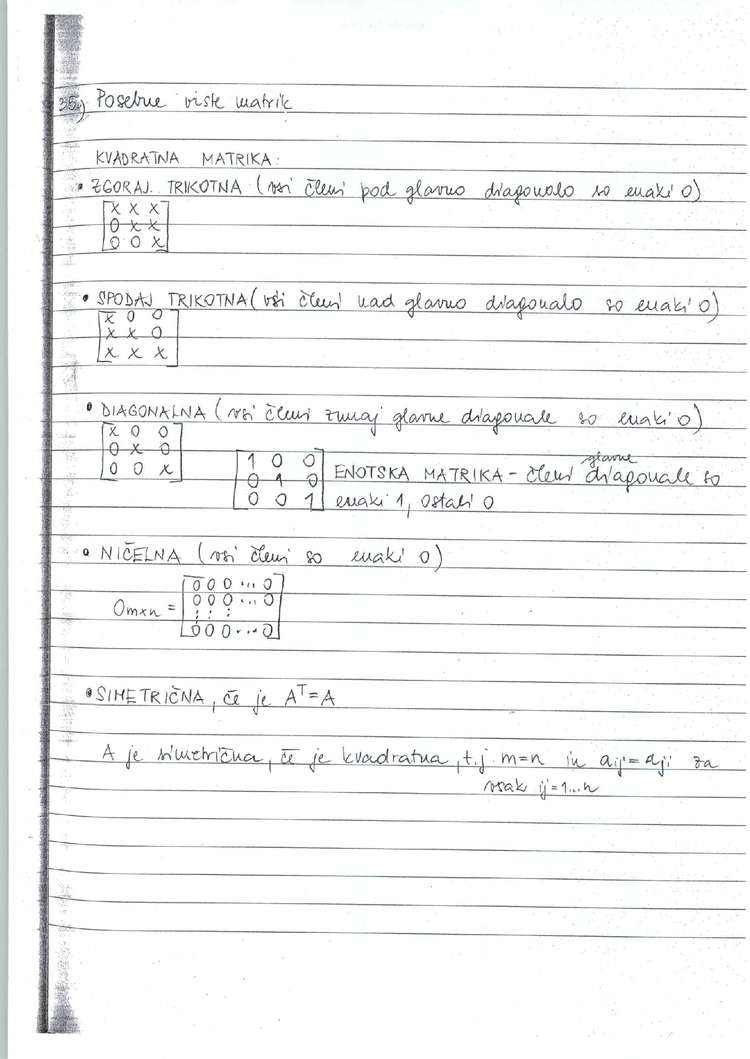 35.) Posebne vrste matrik
KVADRATNA MATRIKA:
• ZGORAJ TRIKOTNA (vsi členi pod glavno diagonalo so enaki 0)
[x x x
0 x x
0 0 x]
• SPODAJ TRIKOTNA (vsi členi nad glavno diagonalo so enaki 0)
[x 0 0
x x 0
x x x]
• DIAGONALNA (vsi členi zunaj glavne diagonale so enaki 0)
[x 0 0
0 x 0
0 0 x]
[1 0 0
0 1 0
0 0 1]
ENOTSKA MATRIKA - členi glavne diagonale so
enaki 1, ostali 0
• NIČELNA (vsi členi so enaki 0)
0mxn = [0 0 0 ... 0
0 0 0 ... 0
⋮ ⋮ ⋮
0 0 0 ... 0]
• SIMETRIČNA, če je Aᵀ=A
A je simetrična, če je kvadratna, t.j. m=n in aij = aji za
vsak ij=1...n